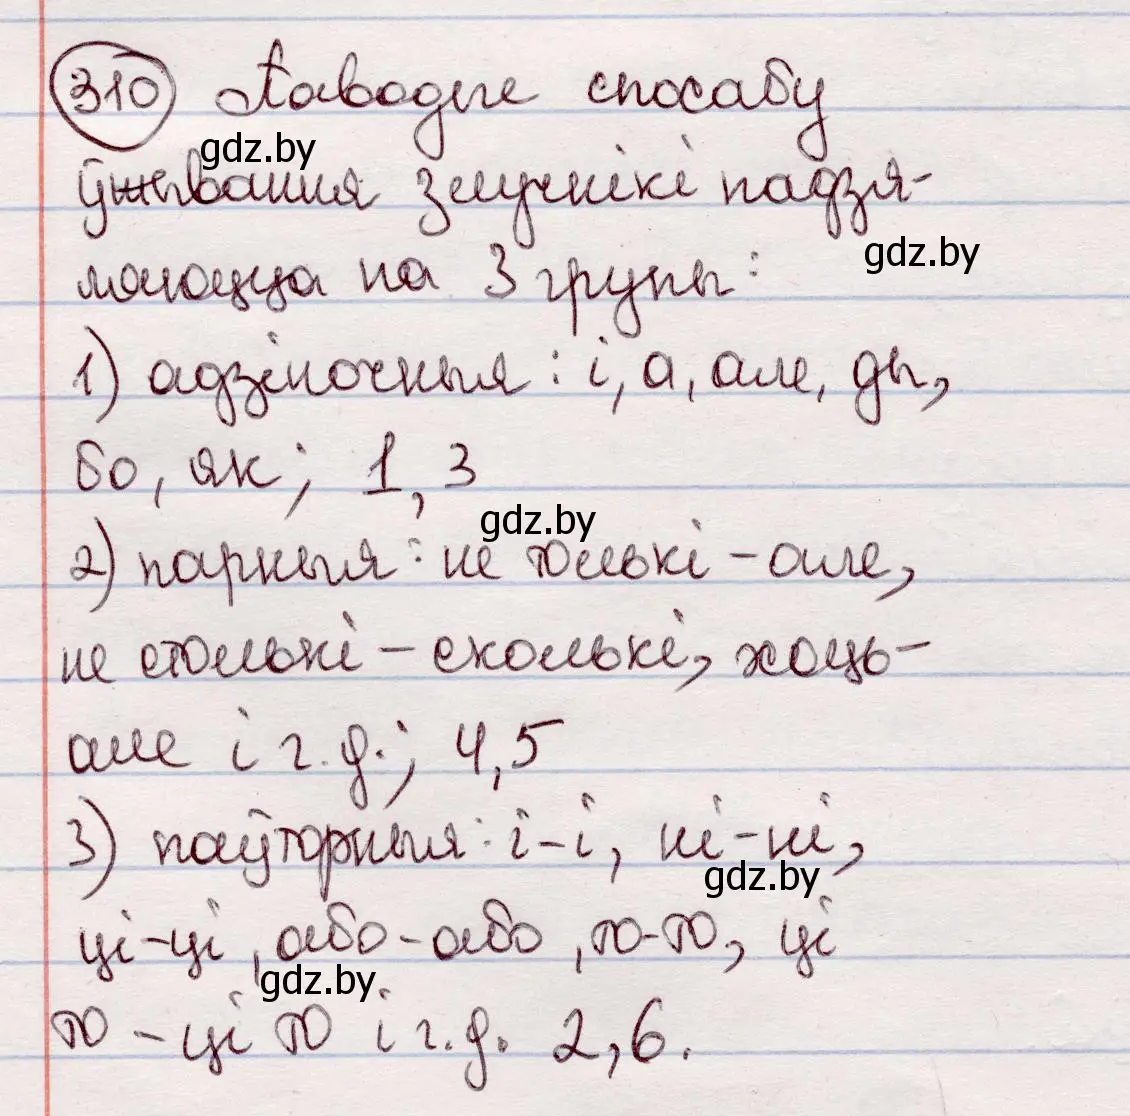 310 Паводле спосабу
gdz.by
ўжывання злучнікі падзя-
gdz.by
ляюцца на 3 групы:
1) адзіночныя: і, а, але, ды,
бо, як; 1, 3
gdz.by
2) парныя: не толькі – але,
не столькі – сколькі, хоць –
але і г.д.; 4,5
3) паўторныя: і-і, ні-ні,
gdz.by
ці-ці, або-або, то-то, ці
gdz.by
то – ці то і г.д. 2,6.